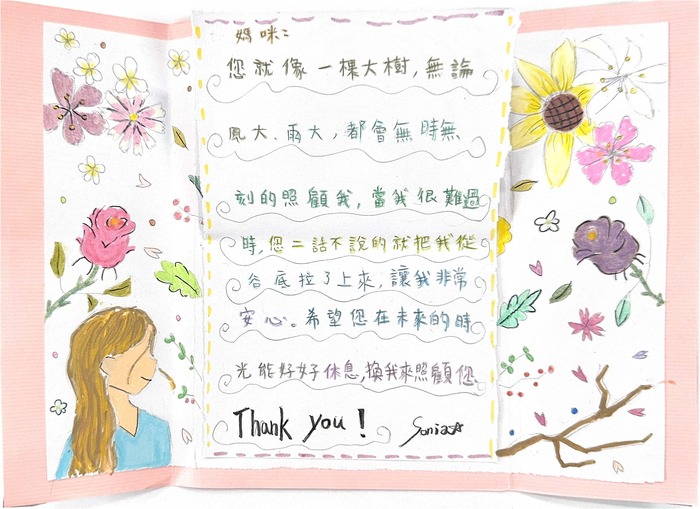 媽咪：
您就像一棵大樹，無論
風大、雨大，都會無時無
刻的照顧我，當我很難過
時，您二話不說的就把我從
谷底拉了上來，讓我非常
安心。希望您在未來的時
光能好好休息，換我來照顧您。
Thank you! Sonia☆